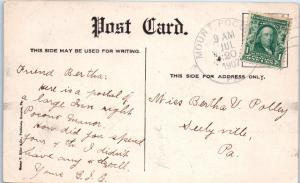 Post Card.
THIS SIDE MAY BE USED FOR WRITING.
THIS SIDE FOR ADDRESS ONLY.
MOUNT POCONO
9 AM
JUL
30
1907
PA.
Friend Bertha:
Here is a postal of
a large Inn right
Pocono Manor.
How did you spend
four & th I didn't
have any th
Yours G.J.G.
Miss Bertha V. Polley
Seelyville,
Pa.